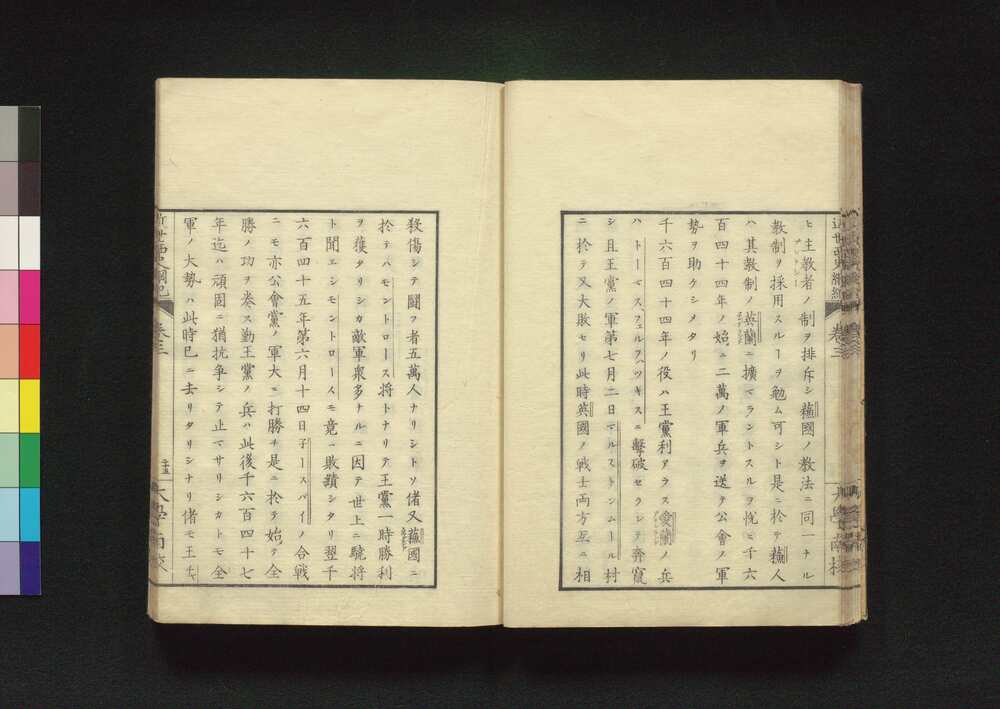 ヒ主教者ノ制ヲ排斥シ蘓國ノ教法ニ同一ナル
教制ヲ採用スルヿヲ勉ム可シト是ニ於テ蘓人
ハ其教制ノ英蘭ニ擴マラントスルヲ悅ヒ千六
百四十四年ノ始ニ二萬ノ軍兵ヲ送テ公會ノ軍
勢ヲ助ケシメタリ
千六百四十四年ノ役ハ王黨利アラス愛蘭ノ兵
ハトーマスフェルファッツキスニ擊破セラレテ奔竄
シ且王黨ノ軍第七月二日マルストンムール村
ニ於テ又大敗セリ此時英國ノ戰士両方互ニ相
殺傷シテ闘フ者五萬人ナリシトソ偖又蘓國ニ
於テハモントロース将トナリテ王黨一時勝利
ヲ獲タリシカ敵軍衆多ナルニ因テ世上ニ驍将
ト聞エシモントロースモ竟ニ敗蹟シタリ翌千
六百四十五年第六月十四日子ースバイノ合戦
ニモ亦公會黨ノ軍大ニ打勝チ是ニ於テ始テ全
勝ノ功ヲ奏ス勤王黨ノ兵ハ此後千六百四十七
年迄ハ頑固ニ猶抗争シテ止マサリシカトモ全
軍ノ大勢ハ此時已ニ去リタリシナリ偖モ王チャ
近世西史綱紀 卷三
大學南校